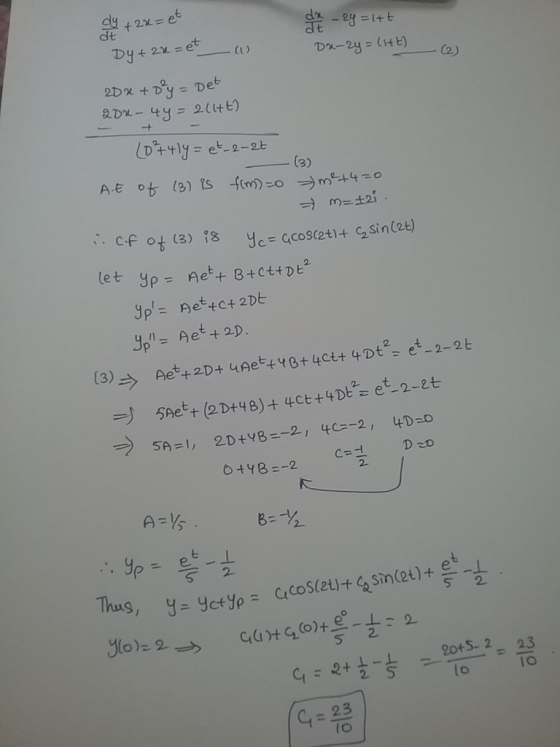 dy/dt + 2x = e^t        dx/dt - 2y = 1+t
Dy + 2x = e^t —— (1)        Dx - 2y = (1+t) —— (2)
2Dx + D²y = De^t
2Dx - 4y = 2(1+t)
-    +    -
(D²+4)y = e^t - 2 - 2t —— (3)
A.E of (3) is f(m)=0 ⇒ m²+4=0
⇒ m = ±2i.
∴ C.F of (3) is y_c = C₁cos(2t) + C₂sin(2t)
let y_p = Ae^t + B + Ct + Dt²
y_p' = Ae^t + C + 2Dt
y_p'' = Ae^t + 2D.
(3) ⇒ Ae^t + 2D + 4Ae^t + 4B + 4Ct + 4Dt² = e^t - 2 - 2t
⇒ 5Ae^t + (2D+4B) + 4Ct + 4Dt² = e^t - 2 - 2t
⇒ 5A=1, 2D+4B=-2, 4C=-2, 4D=0
0+4B=-2        C=-1/2        D=0
A=1/5.        B=-1/2
∴ y_p = e^t/5 - 1/2
Thus, y = y_c+y_p = C₁cos(2t) + C₂sin(2t) + e^t/5 - 1/2.
y(0)=2 ⇒ C₁(1) + C₂(0) + e^0/5 - 1/2 = 2
C₁ = 2 + 1/2 - 1/5 = (20+5-2)/10 = 23/10.
C₁ = 23/10